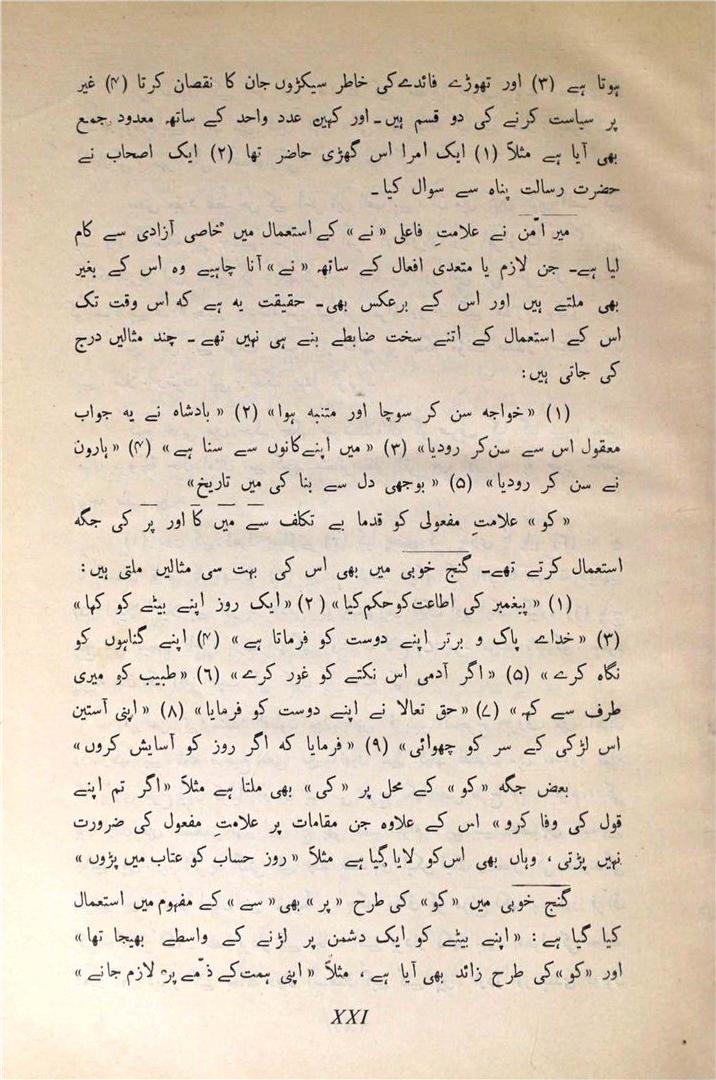 ہوتا ہے (۳) اور تھوڑے فائدے کی خاطر سیکڑوں جان کا نقصان کرتا (۴) غیر
پر سیاست کرنے کی دو قسم ہیں۔ اور کہیں عدد واحد کے ساتھ معدود جمع
بھی آیا ہے مثلاً (۱) ایک امرا اس گھڑی حاضر تھا (۲) ایک اصحاب نے
حضرت رسالت پناہ سے سوال کیا۔
میر امّن نے علامتِ فاعلی «نے» کے استعمال میں خاصی آزادی سے کام
لیا ہے۔ جن لازم یا متعدی افعال کے ساتھ «نے» آنا چاہیے وہ اس کے بغیر
بھی ملتے ہیں اور اس کے برعکس بھی۔ حقیقت یہ ہے کہ اس وقت تک
اس کے استعمال کے اتنے سخت ضابطے بنے ہی نہیں تھے۔ چند مثالیں درج
کی جاتی ہیں:
(۱) «خواجہ سن کر سوچا اور متنبہ ہوا» (۲) «بادشاہ نے یہ جواب
معقول اس سے سن کر رودیا» (۳) «میں اپنے کانوں سے سنا ہے» (۴) «ہارون
نے سن کر رودیا» (۵) «بوجھی دل سے بنا کی میں تاریخ»
«کو» علامتِ مفعولی کو قدما بے تکلف سے میں کا اور پر کی جگہ
استعمال کرتے تھے۔ گنج خوبی میں بھی اس کی بہت سی مثالیں ملتی ہیں:
(۱) «پیغمبر کی اطاعت کو حکم کیا» (۲) «ایک روز اپنے بیٹے کو کہا»
(۳) «خداے پاک و برتر اپنے دوست کو فرماتا ہے» (۴) اپنے گناہوں کو
نگاہ کرے» (۵) «اگر آدمی اس نکتے کو غور کرے» (۶) «طبیب کو میری
طرف سے کہہ» (۷) «حق تعالا نے اپنے دوست کو فرمایا» (۸) «اپنی آستین
اس لڑکی کے سر کو چھوائی» (۹) «فرمایا کہ اگر روز کو آسایش کروں»
بعض جگہ «کو» کے محل پر «کی» بھی ملتا ہے مثلاً «اگر تم اپنے
قول کی وفا کرو» اس کے علاوہ جن مقامات پر علامتِ مفعول کی ضرورت
نہیں پڑتی، وہاں بھی اس کو لایا گیا ہے مثلاً «روز حساب کو عتاب میں پڑوں»
گنج خوبی میں «کو» کی طرح «پر» بھی «سے» کے مفہوم میں استعمال
کیا گیا ہے: «اپنے بیٹے کو ایک دشمن پر لڑنے کے واسطے بھیجا تھا»
اور «کو» کی طرح زائد بھی آیا ہے، مثلاً «اپنی ہمت کے ذمّے پر لازم جانے»
XXI